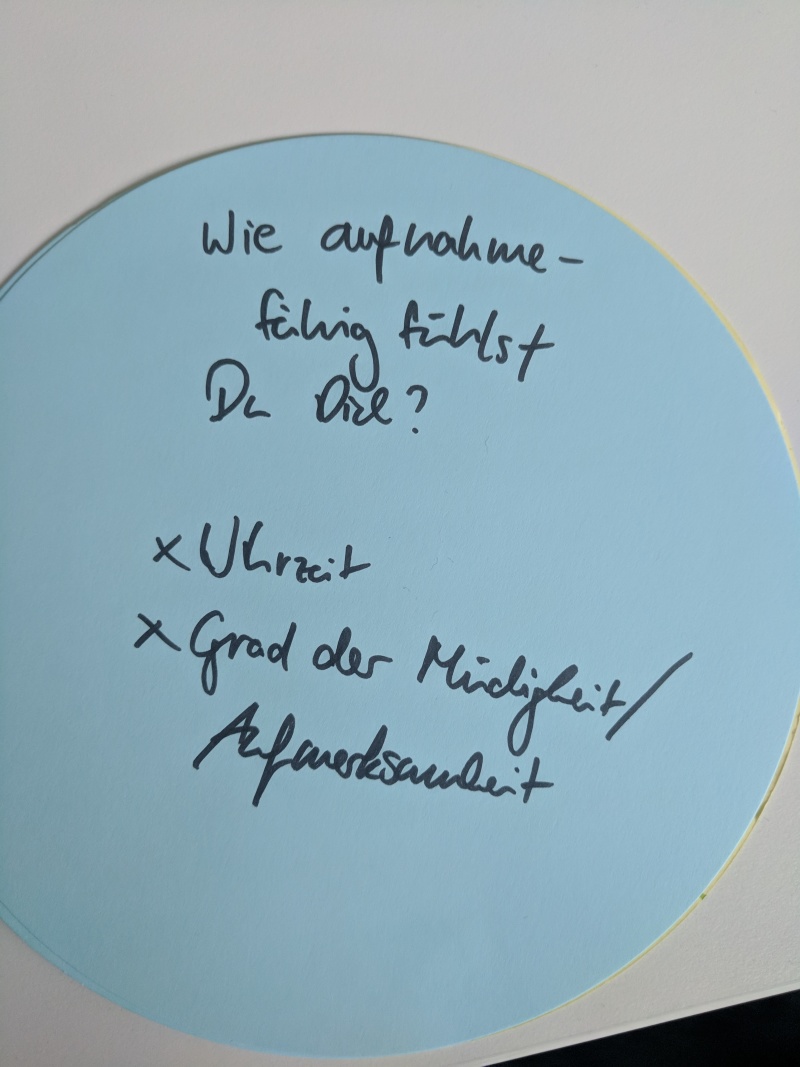 Wie aufnahme-
fähig fühlst
Du Dich?
x Uhrzeit
x Grad der Müdigkeit/
Aufmerksamkeit